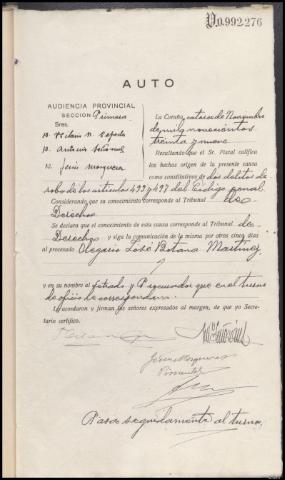 0.992.276
AUTO
AUDIENCIA PROVINCIAL
SECCION Primera
Sres.
D. Antonio
D. Jesús Mosquera
La Coruña, catorce de Noviembre
de mil novecientos
treinta y nueve
Resultando que el Sr. Fiscal califica
los hechos origen de la presente causa
como constitutivos de dos delitos de
robo de los artículos 493 y 497 del Código penal.
Considerando que su conocimiento corresponde al Tribunal de
Derecho
Se declara que el conocimiento de esta causa corresponde al Tribunal de
Derecho y siga la comunicación de la misma por otros cinco días
al procesado Olegario José Botana Martínez
y en su nombre al Letrado y Procurador que en el turno
de oficio le correspondan.
Lo acordaron y firman los señores expresados al margen, de que yo Secretario certifico.
Jesús Mosquera
Pimentel
Pasa seguidamente al turno.